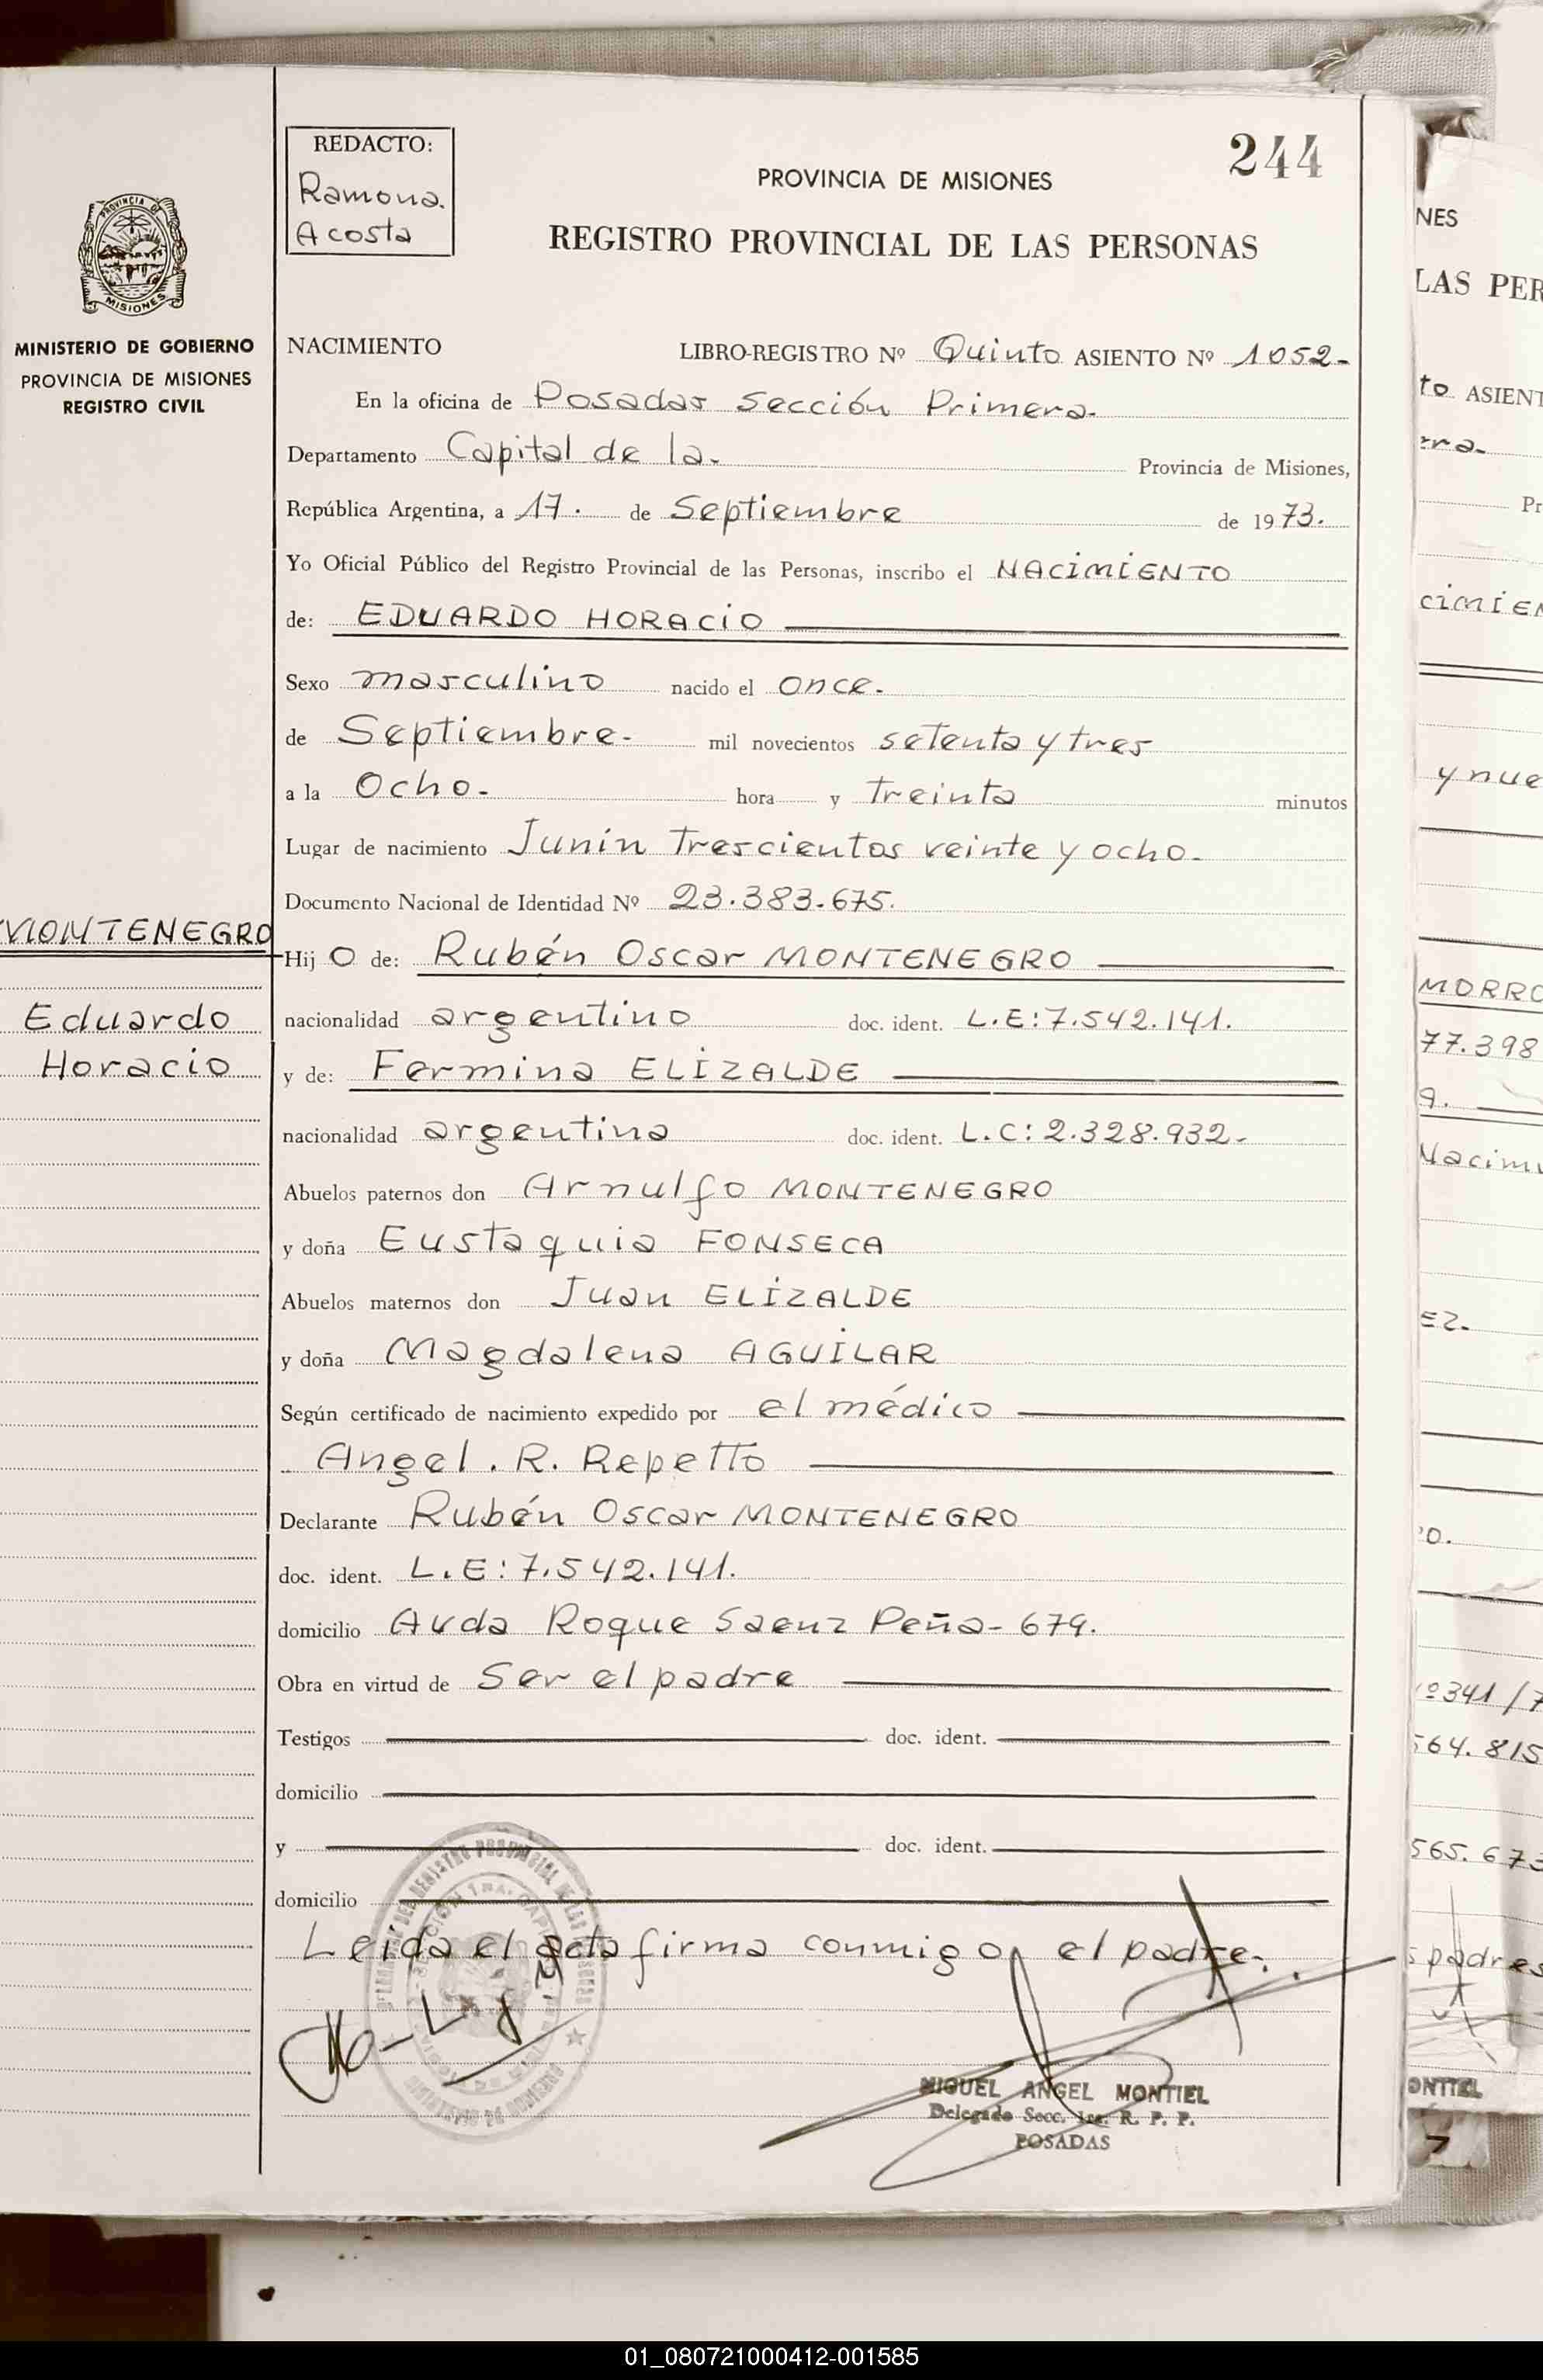 REDACTO:
Ramona.
Acosta
244
PROVINCIA DE MISIONES
REGISTRO PROVINCIAL DE LAS PERSONAS
PROVINCIA DE
MISIONES
MINISTERIO DE GOBIERNO
PROVINCIA DE MISIONES
REGISTRO CIVIL
NACIMIENTO LIBRO-REGISTRO Nº Quinto ASIENTO Nº 1052-
En la oficina de Posadas Sección Primera-
Departamento Capital de la- Provincia de Misiones,
República Argentina, a 17. de Septiembre de 1973.
Yo Oficial Público del Registro Provincial de las Personas, inscribo el NACIMIENTO
de: EDUARDO HORACIO
Sexo masculino nacido el once-
de Septiembre- mil novecientos setenta y tres
a la Ocho- hora y treinta minutos
Lugar de nacimiento Junín Trescientos veinte y ocho-
Documento Nacional de Identidad Nº 23.383.675.
MONTENEGRO
Eduardo
Horacio
Hijo de: Rubén Oscar MONTENEGRO
nacionalidad argentino doc. ident. L.E:7.542.141.
y de: Fermina ELIZALDE
nacionalidad argentina doc. ident. L.C:2.328.932-
Abuelos paternos don Arnulfo MONTENEGRO
y doña Eustaquia FONSECA
Abuelos maternos don Juan ELIZALDE
y doña Magdalena AGUILAR
Según certificado de nacimiento expedido por el médico
Angel. R. Repetto
Declarante Rubén Oscar MONTENEGRO
doc. ident. L.E:7.542.141.
domicilio Avda Roque Saenz Peña-679.
Obra en virtud de Ser el padre
Testigos doc. ident.
domicilio
y doc. ident.
domicilio
Leída el acta firma conmigo, el padre.
MIGUEL ANGEL MONTIEL
Delegado Secc. 1ra. R. P. P.
POSADAS
NES
LAS PER
to ASIENT
Pr
cimien
y nue
MORRO
77.398
Nacimi
EZ.
º341/7
564.815
565.673
s padres
ONTIEL
01_080721000412-001585